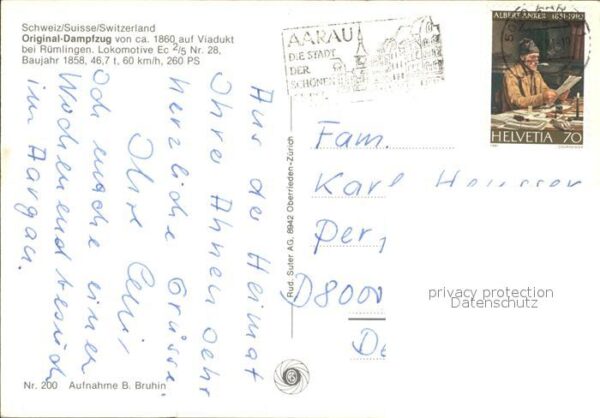 Schweiz/Suisse/Switzerland
Original-Dampfzug von ca. 1860 auf Viadukt
bei Rümlingen. Lokomotive Ec 2/5 Nr. 28,
Baujahr 1858, 46,7 t, 60 km/h, 260 PS
AARAU
DIE STADT
DER
SCHÖNEN
ALBERT ANKER 1831-1910
HELVETIA 70
Aus der Heimat
Ihre Ahnen sehr
herzliche Grüsse.
Ihre
Ich mache einen
Wochenendbesuch
im Aargau.
Rud. Suter AG, 8942 Oberrieden-Zürich
Fam.
Karl
Per
D8000
privacy protection
Datenschutz
Nr. 200 Aufnahme B. Bruhin